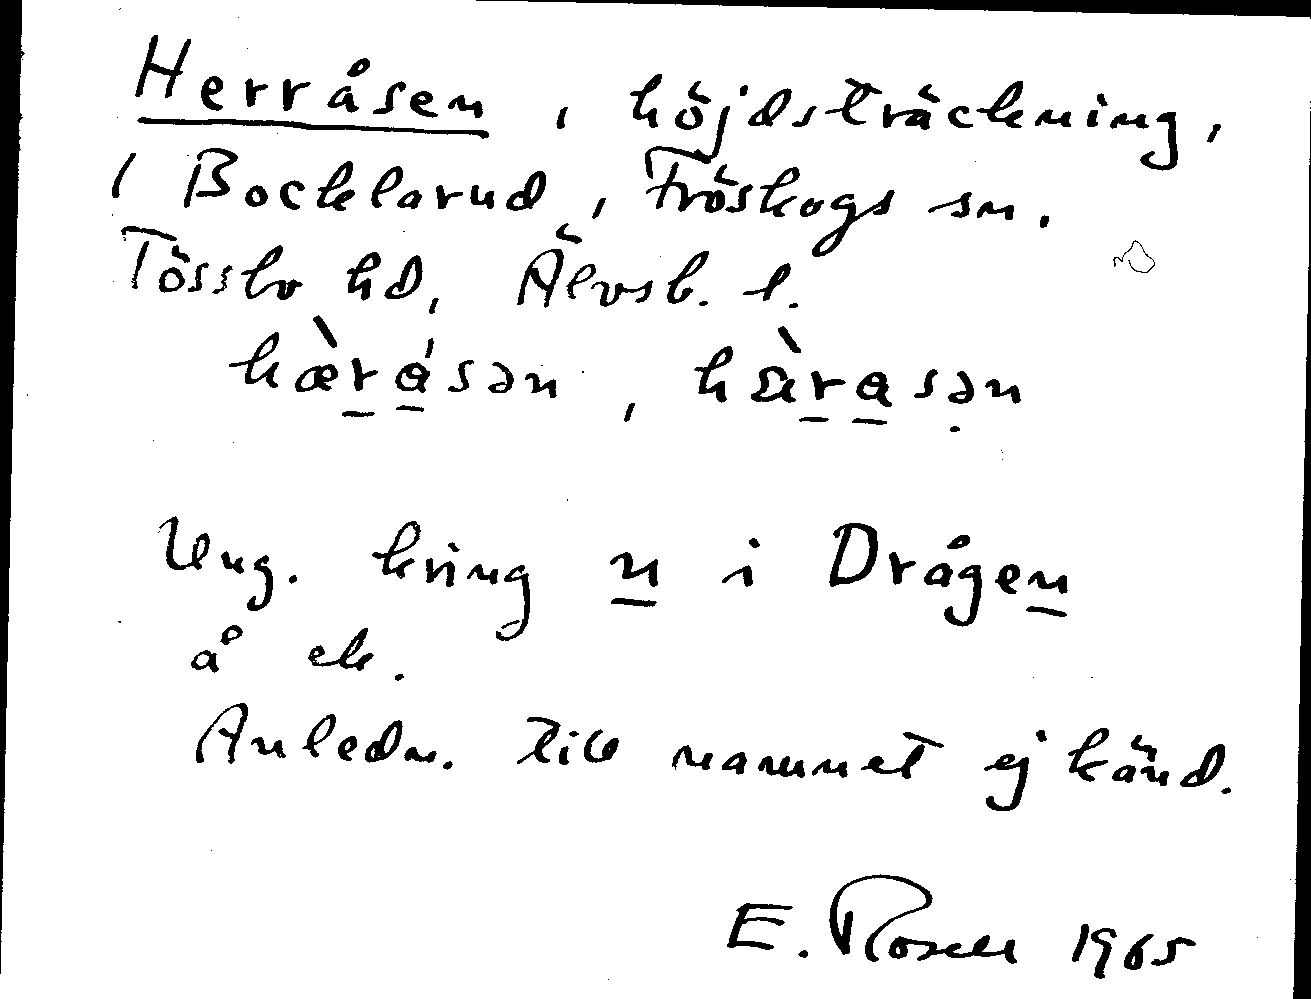 Herråsen, höjdsträckning,
i Bocklarud, Fröskogs sn.
Tössbo hd, Älvsb. l.
hæ̀rásən, hæ̀rasən
Ung. kring n i Drågen
å ek.
Anledn. till namnet ej känd.
E. Rosell 1965